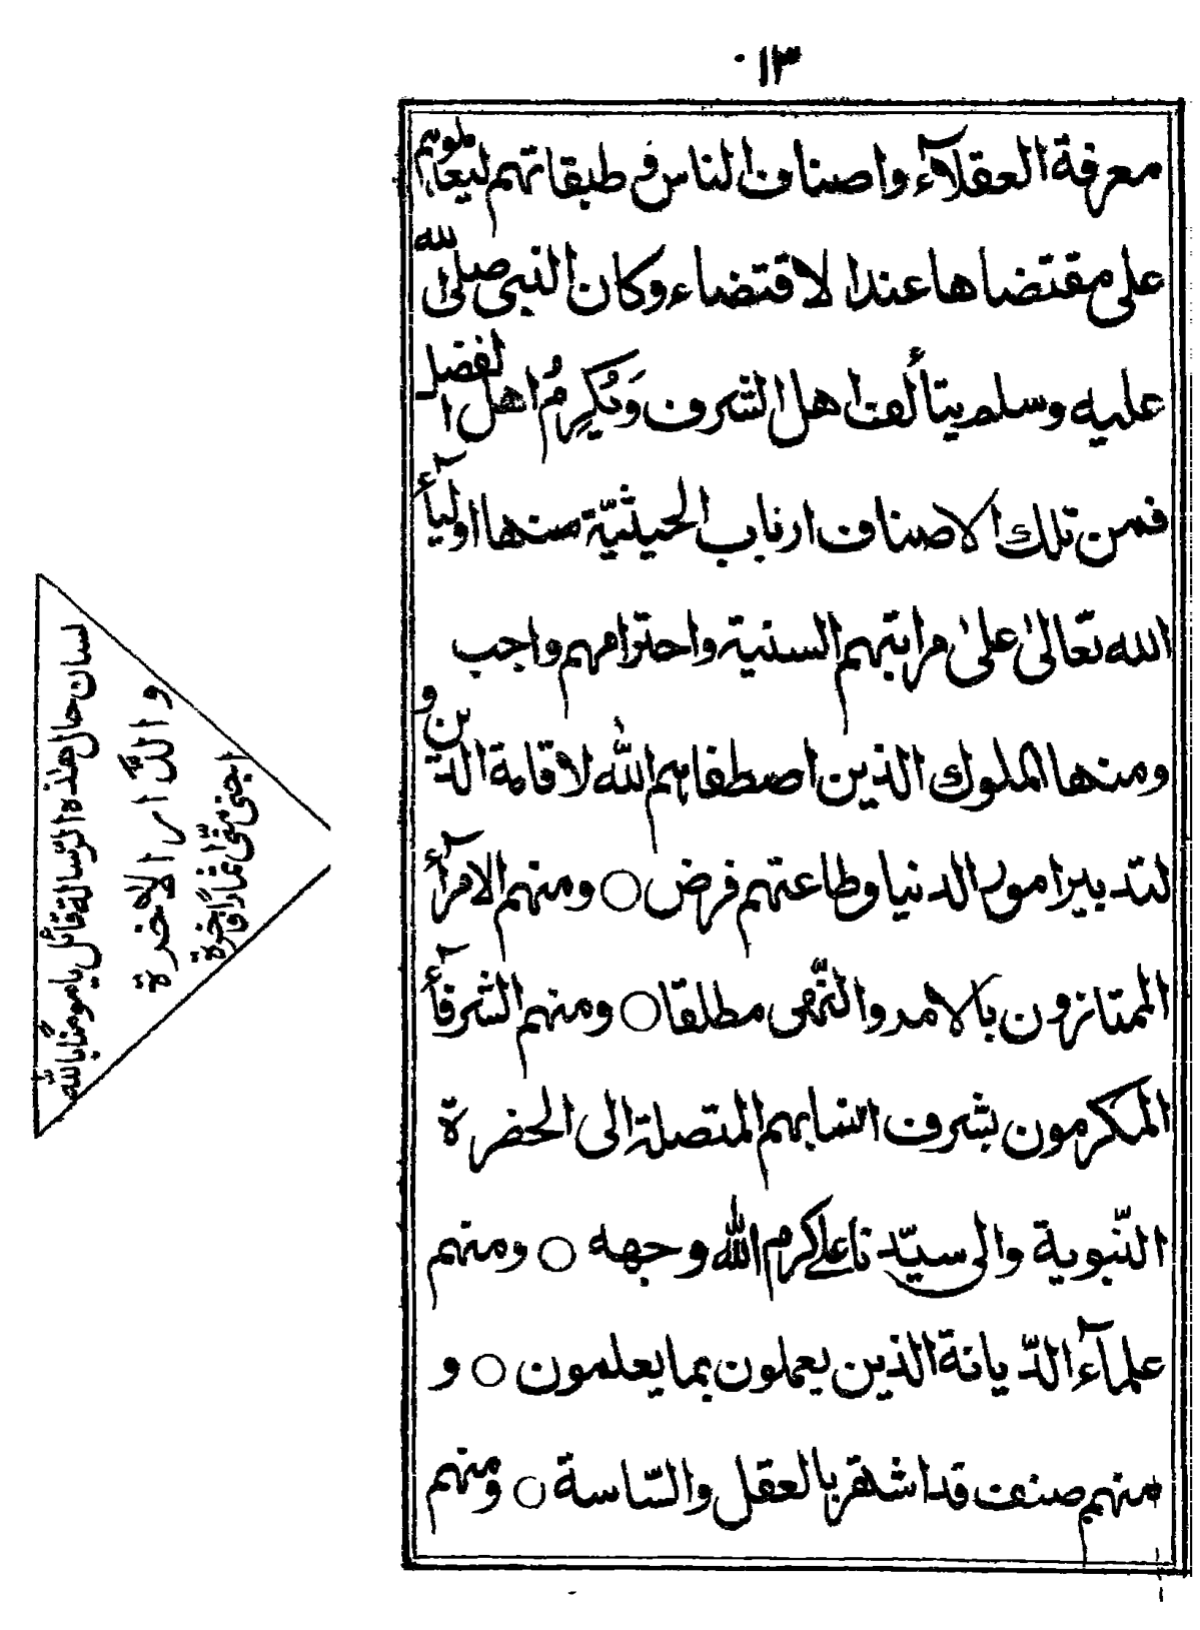 ١٣
معرفة العقلآء واصناف الناس فى طبقاتهم ليعاملوهم
على مقتضاها عند الاقتضاء وكان النبى صلى الله
عليه وسلم يتألف اهل الشرف وَيُكرِمُ اهل الفضل
فمن تلك الاصناف ارباب الحيثيّة منها اوليآء
الله تعالىٰ علىٰ مراتبهم السنية واحترامهم واجب
ومنها الملوك الذين اصطفاهم الله لاقامة الدّين و
لتدبير امور الدنيا وطاعتهم فرض ○ ومنهم الامرآء
الممتازون بالامر والنّهى مطلقا ○ ومنهم الشرفآء
المكرمون بشرف انسابهم المتصلة الى الحضرة
النّبوية والى سيّدنا على كرم الله وجهه ○ ومنهم
علمآء الدّيانة الذين يعملون بما يعلمون ○ و
منهم صنف قد اشتهر بالعقل والسّاسة ○ ومنهم
لسان حال هذه الرّسالة قائل يا مومنًا بالله
والدّار الاخرة
اجنى منّى اثمارًا فاخرة